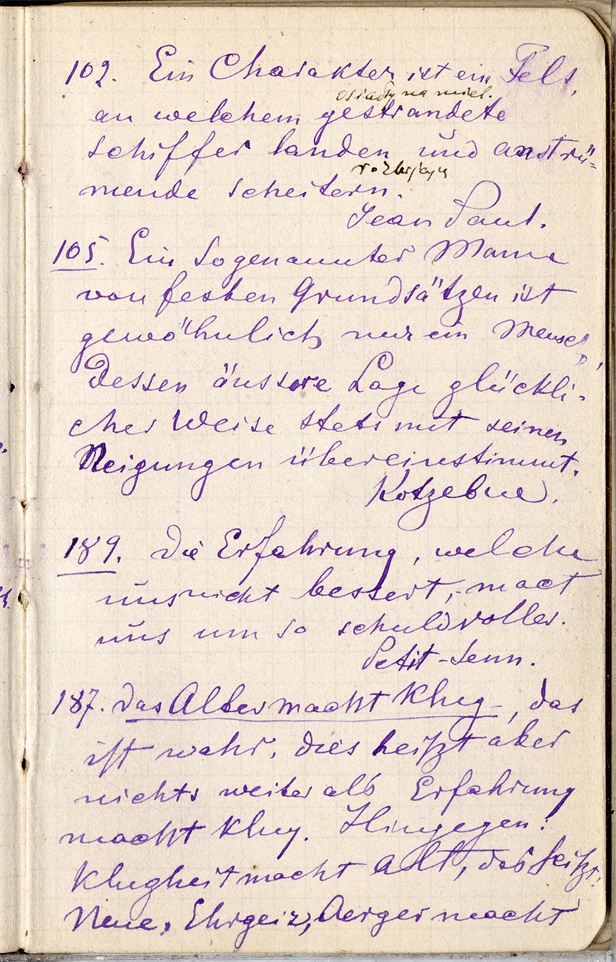 102. Ein Charakter ist ein Fels,
an welchem gestrandete
Schiffer landen und anstür-
mende scheitern.
Jean Paul.
105. Ein Sogenannter Mann
von festen Grundsätzen ist
gewöhnlich nur ein Mensch,
Dessen äussere Lage glückli-
cher Weise stets mit seinen
Neigungen übereinstimmt.
Kotzebue.
189. Die Erfahrung, welche
uns nicht bessert, mact
uns um so schuldvoller.
Petit-Senn.
187. Das Alter macht Klug, das
ist wahr, dies heiszt aber
nichts weiter als Erfahrung
macht klug. Hingegen:
Klugheit macht Alt, das heiszt:
Neue, Ehrgeiz, Aerger macht